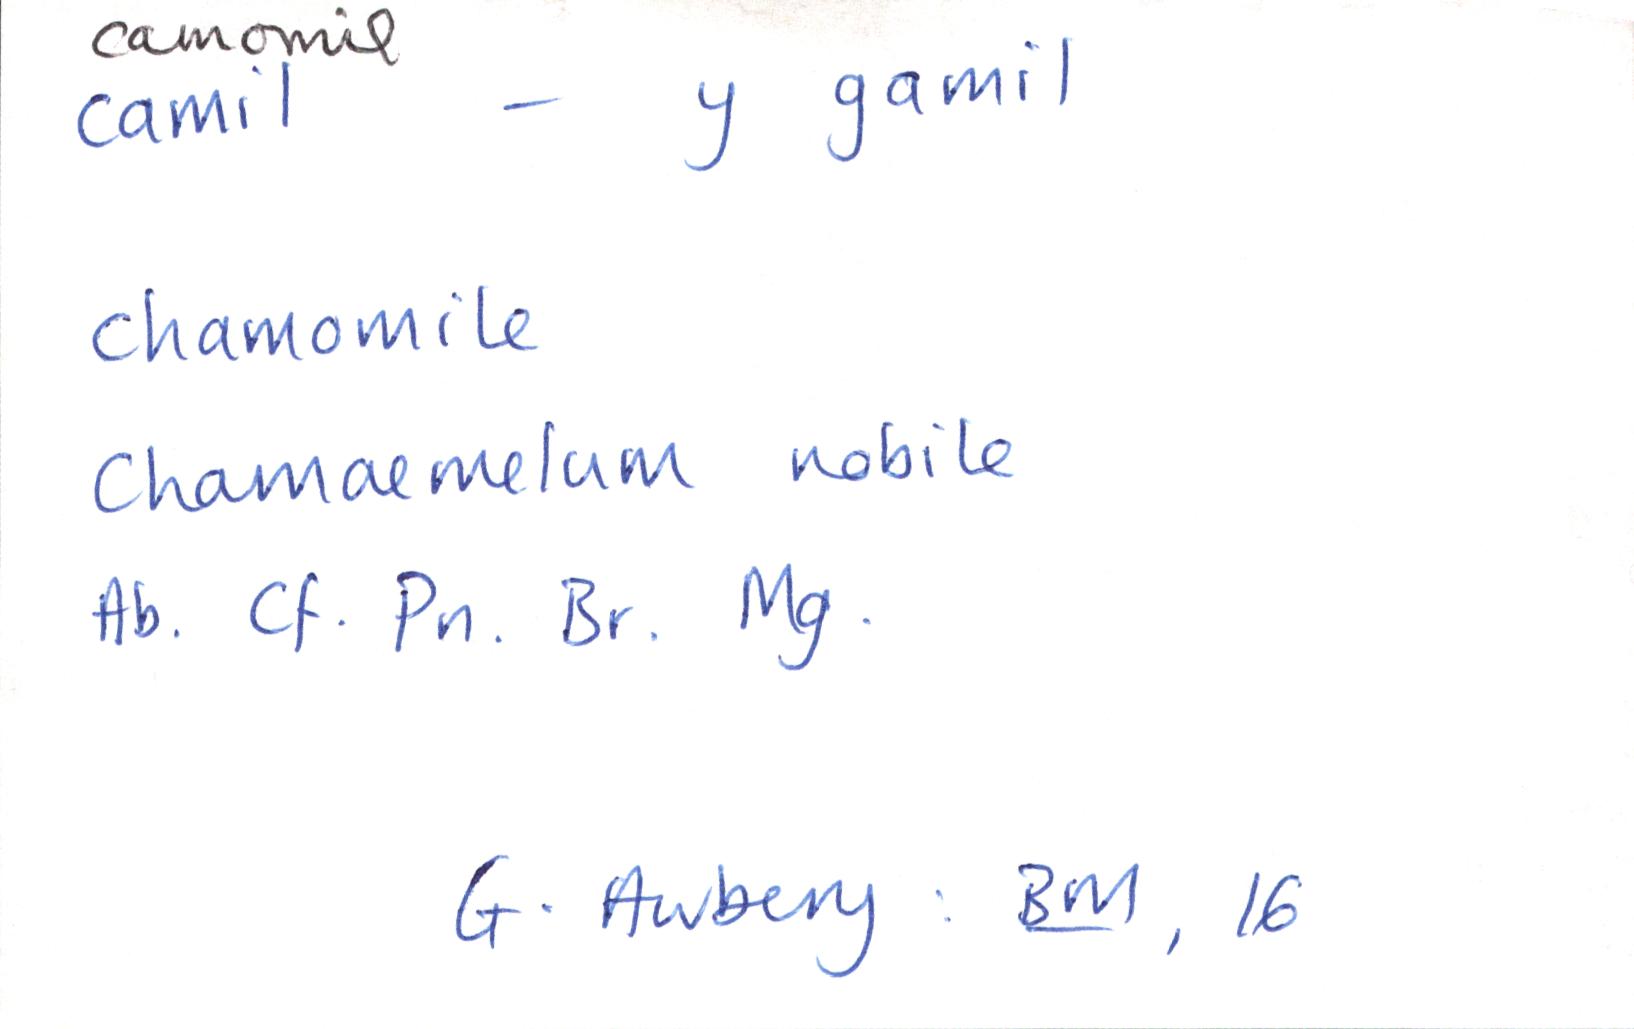 camomil
camil - y gamil
chamomile
Chamaemelum nobile
Ab. Cf. Pn. Br. Mg.
G. Awbery : BM, 16